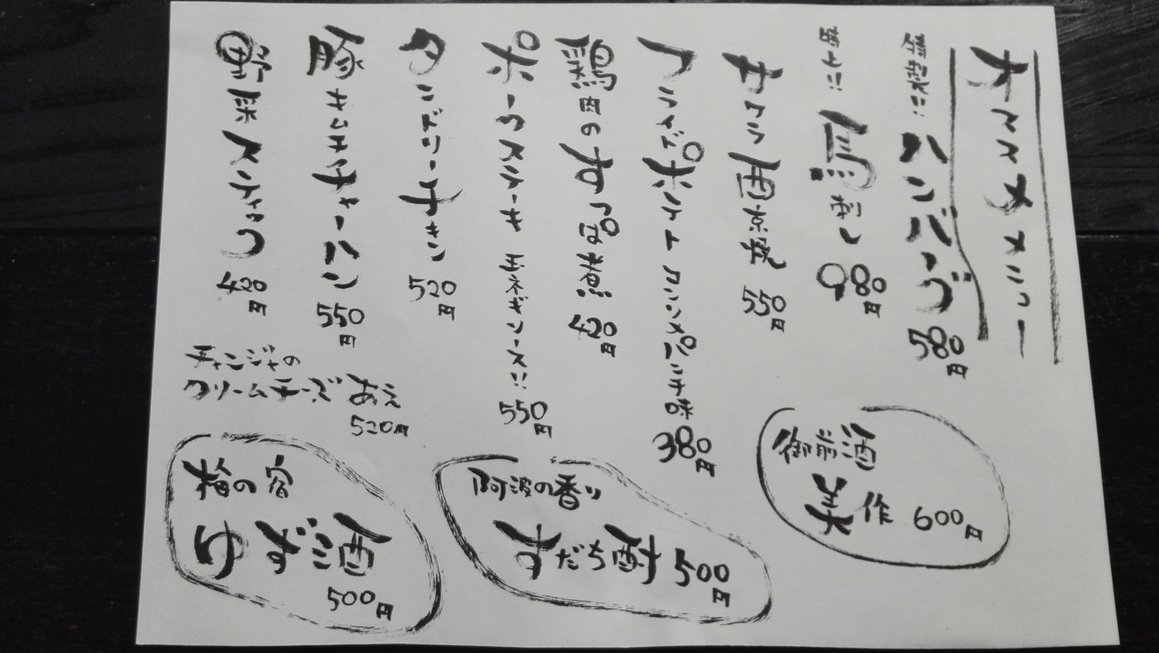 オススメメニュー
鉄鍋!! ハンバーグ 580円
980円
550円
フライドポテト アンチョビ味 380円
鶏肉の 420円
ポークステーキ 玉ネギソース!! 550円
タンドリーチキン 520円
豚キムチチャーハン 550円
野菜スティック 420円
チャンジャの
クリームチーズあえ
520円
御前酒
美作 600円
阿波の香り
すだち酎 500円
梅の宿
ゆず酒
500円